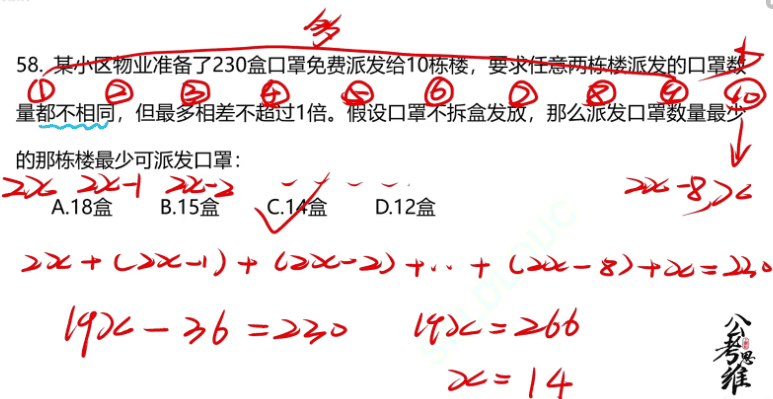 多
58. 某小区物业准备了230盒口罩免费派发给10栋楼，要求任意两栋楼派发的口罩数
少
① ② ③ ④ ⑤ ⑥ ⑦ ⑧ ⑨ ⑩
量都不相同，但最多相差不超过1倍。假设口罩不拆盒发放，那么派发口罩数量最少
的那栋楼最少可派发口罩：
2x 2x-1 2x-2 2x-8 x
A.18盒 B.15盒 C.14盒 D.12盒
2x+(2x-1)+(2x-2)+...+(2x-8)+x=230
19x-36=230 19x=266
x=14
公考思维